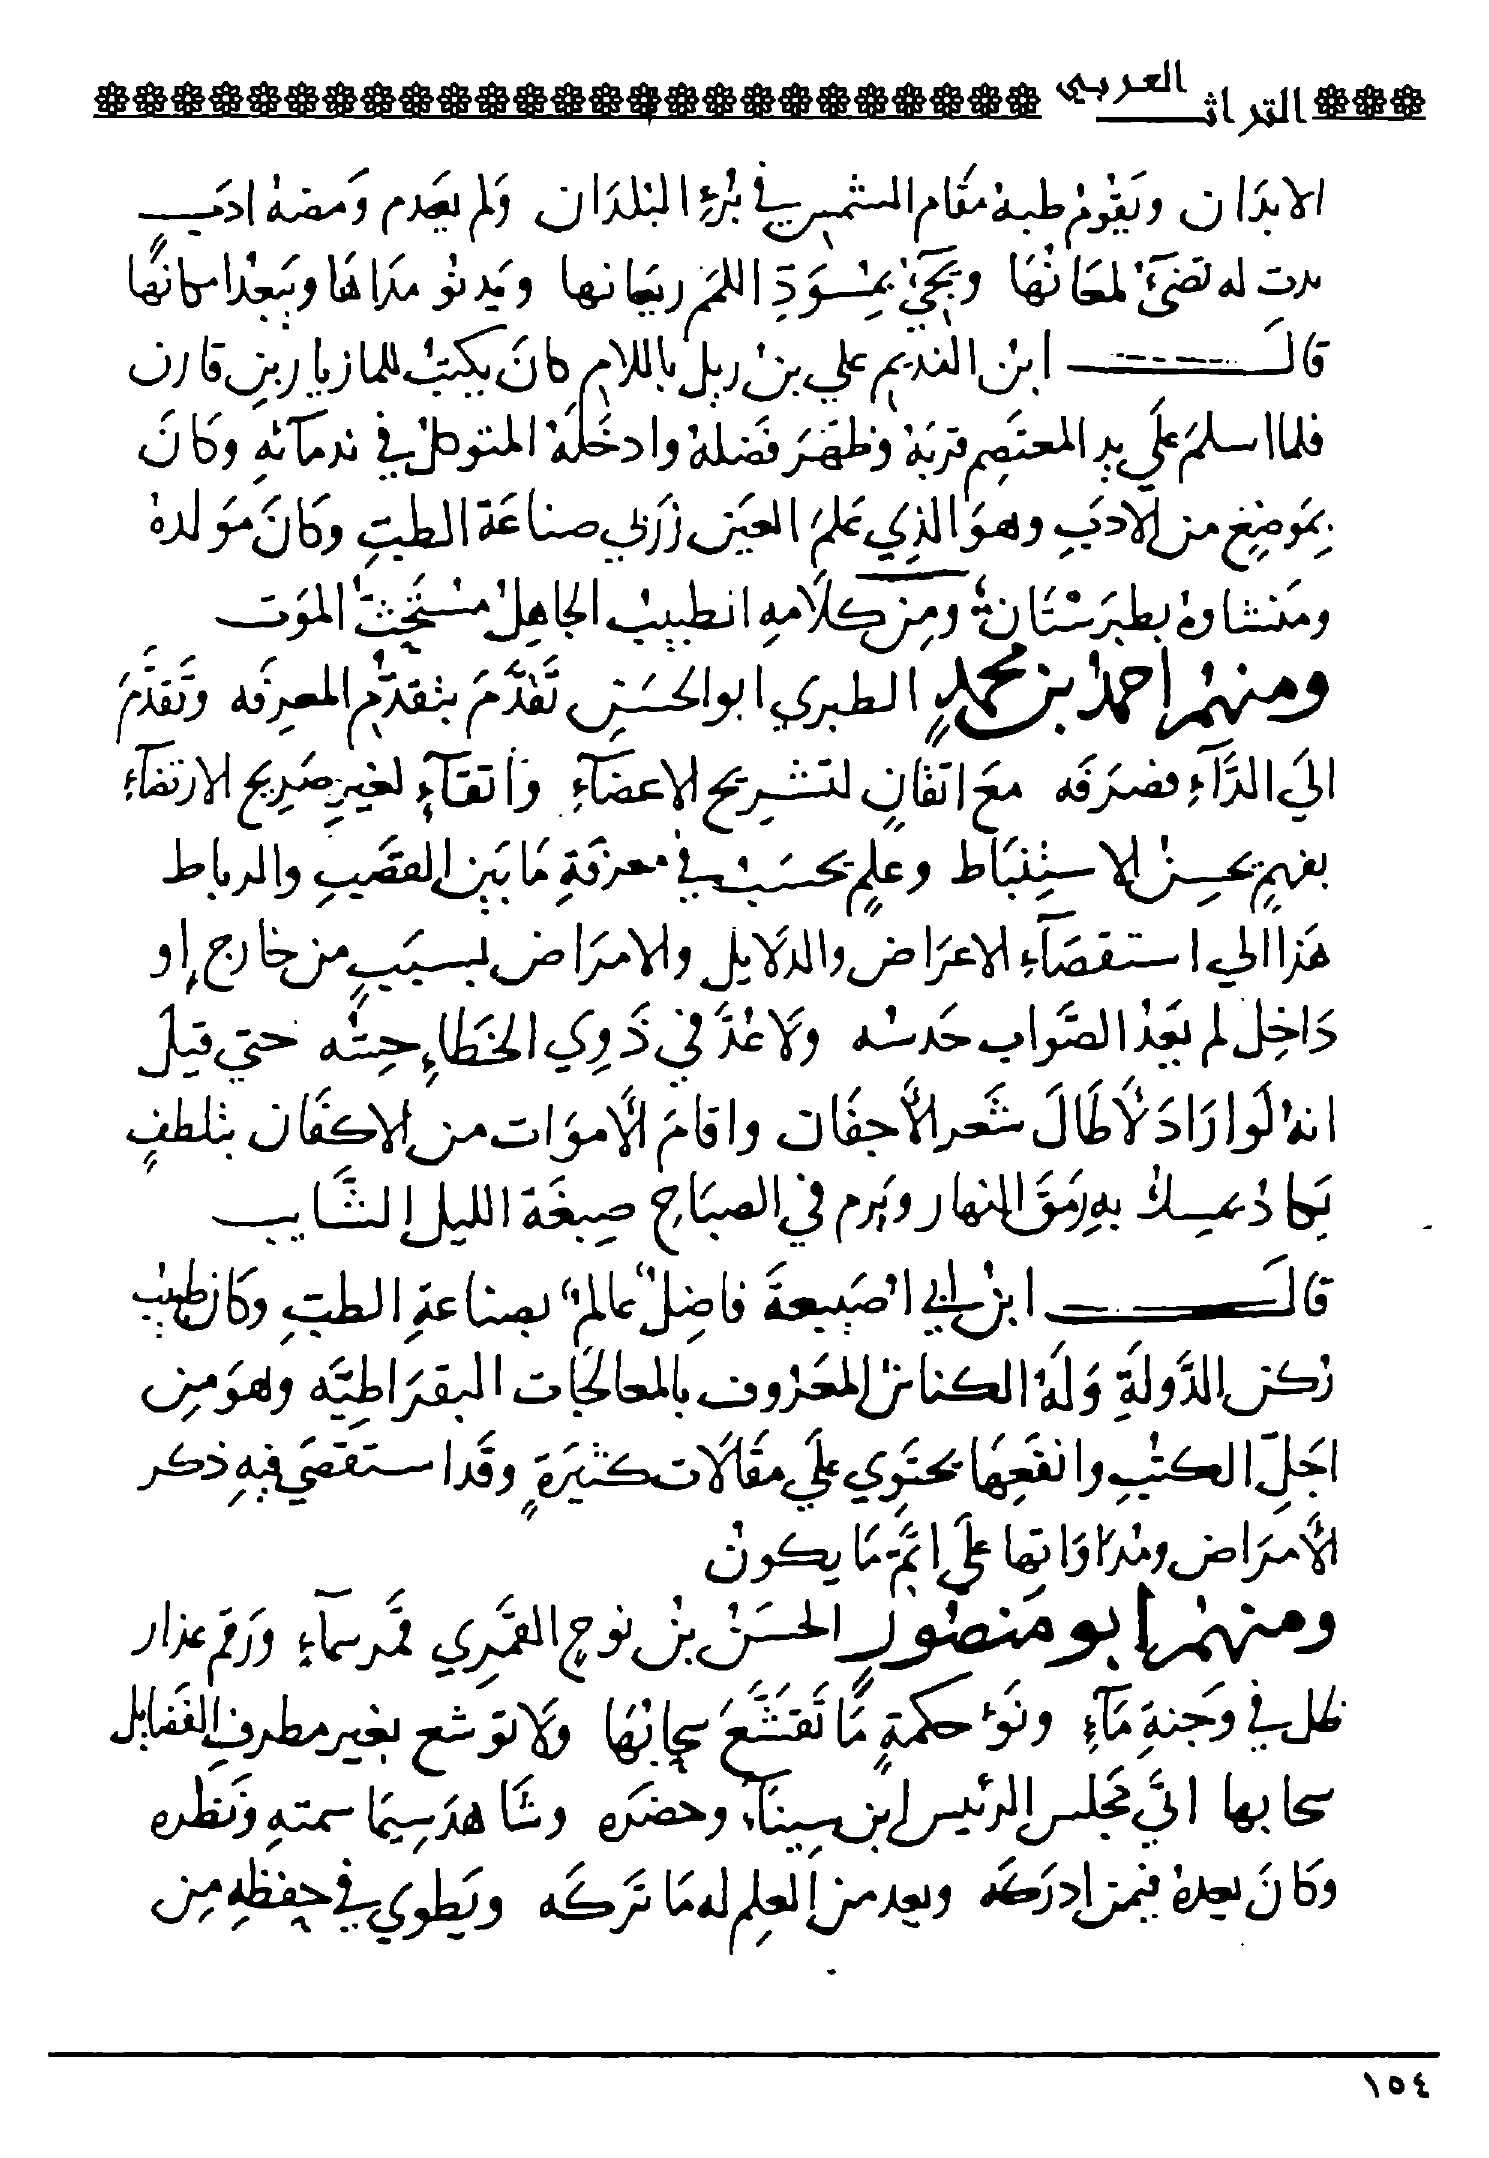 التراث العربي
الابدَان ويَقُومُ طبهُ مقَام الشمس في بُرْءِ البُلدَان وَلم يَعدم وَمضهُ ادَب
بدت له تضئُ لمعَاتُهَا ويَجيُ بمُسْوَدِّ اللمَم ريعَانها ويَدنُو مدَاهَا ويَبعُد امكانهَا
قَالَ ابنُ النديم علي بن رَبل باللام كانَ يكتبُ للمازيار بن قارن
فلما اسلمَ علَي يدِ المعتَصِم قربَهُ وَظهَرَ فَضلهُ وادخَلَهُ المتوكلُ في ندمآئهِ وكَانَ
بمَوضعٍ من الادَبِ وهوَ الذِي عَلمَ العين زَرَبي صناعَة الطبِّ وكَانَ مَولدهُ
ومَنشاوهُ بطبرَسْتَان ومن كلَامهِ الطبيبُ الجاهِلُ مسْتَحِثُّ المَوت
ومنهمُ احمدُ بن محمدٍ الطبري ابوالحسَن تَقدَّمَ بتقدُّم المعرِفَه وَتَقَدَّمَ
اليَ الدَّآءِ فصَرَفَه معَ اتقَانٍ لتشريحِ الاعضَآءِ وَاتقَآءٍ لغيرِ صَرِيحِ الارتضَآءِ
بفهمٍ يحسِنُ الاستِنْبَاط وعلمٍ يحسَبُ في معرفَةِ مَا بَين القصَبِ والرباط
هَذا الي استقصَآءِ الاعرَاض والدلَايل والامرَاض لسَبَبٍ من خَارجٍ او
دَاخِلٍ لم يَعدُ الصَّوابَ حَدسُه ولَا عُدَّ في ذَوِي الخَطاءِ حِسّه حتي قيلَ
انهُ لَو ارَادَ لأَطَالَ شَعر الأَجفَان واقامَ الأَموَات من الاكفَان بتلطفٍ
يَكادُ يمسِكُ بهِ رَمَقَ النهار ويَرم في الصبَاحِ صِبغَة الليل الشَّايب
قَالَ ابنُ ابي اُصَيبعةَ فاضِلٌ عالمٌ بصناعةِ الطبِّ وكَان طبيبُ
رُكن الدَّولَةِ وَلَهُ الكناشُ المعرُوف بالمعالجَات البقرَاطِيَّه وهوَ من
اجَلِّ الكتُبِ وانفَعِهَا يحتَوِي علَي مقَالَات كثيرَةٍ وقَد استَقصَي فيهِ ذكر
الأَمرَاض ومُدَاوَاتِها علَي اتَمِّ مَا يكونُ
ومنهمُ ابو مَنصُورٍ الحسَنُ بنُ نوحٍ القمَري قمَر سمآءٍ وَرَقم عذار
ظل في وَجنةِ مَآءٍ ونَوءُ حكمةٍ مَّا تَقَشَّعَ سحَابُهَا ولَا توشع بغير مطرف الفضَايل
سحابها اتَي مَجلس الرئيس ابن سِينَآءَ وحضَرَه وشَاهدَ سِيمَا سمتهِ وَنَظره
وكَانَ يعدهُ فيمن ادرَكَه ويعد من العِلم له مَا تَركَه ويَطوي في حِفظهِ من
١٥٤